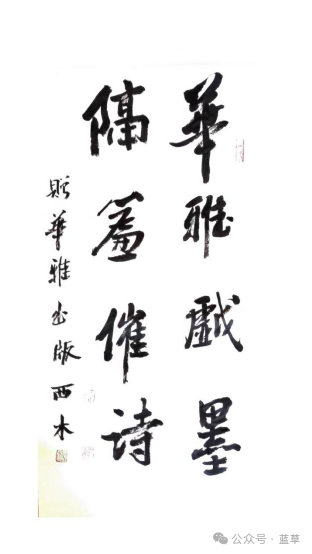 華雅戲墨
隔盖催诗
贈華雅出版西木
公众号·蓝草